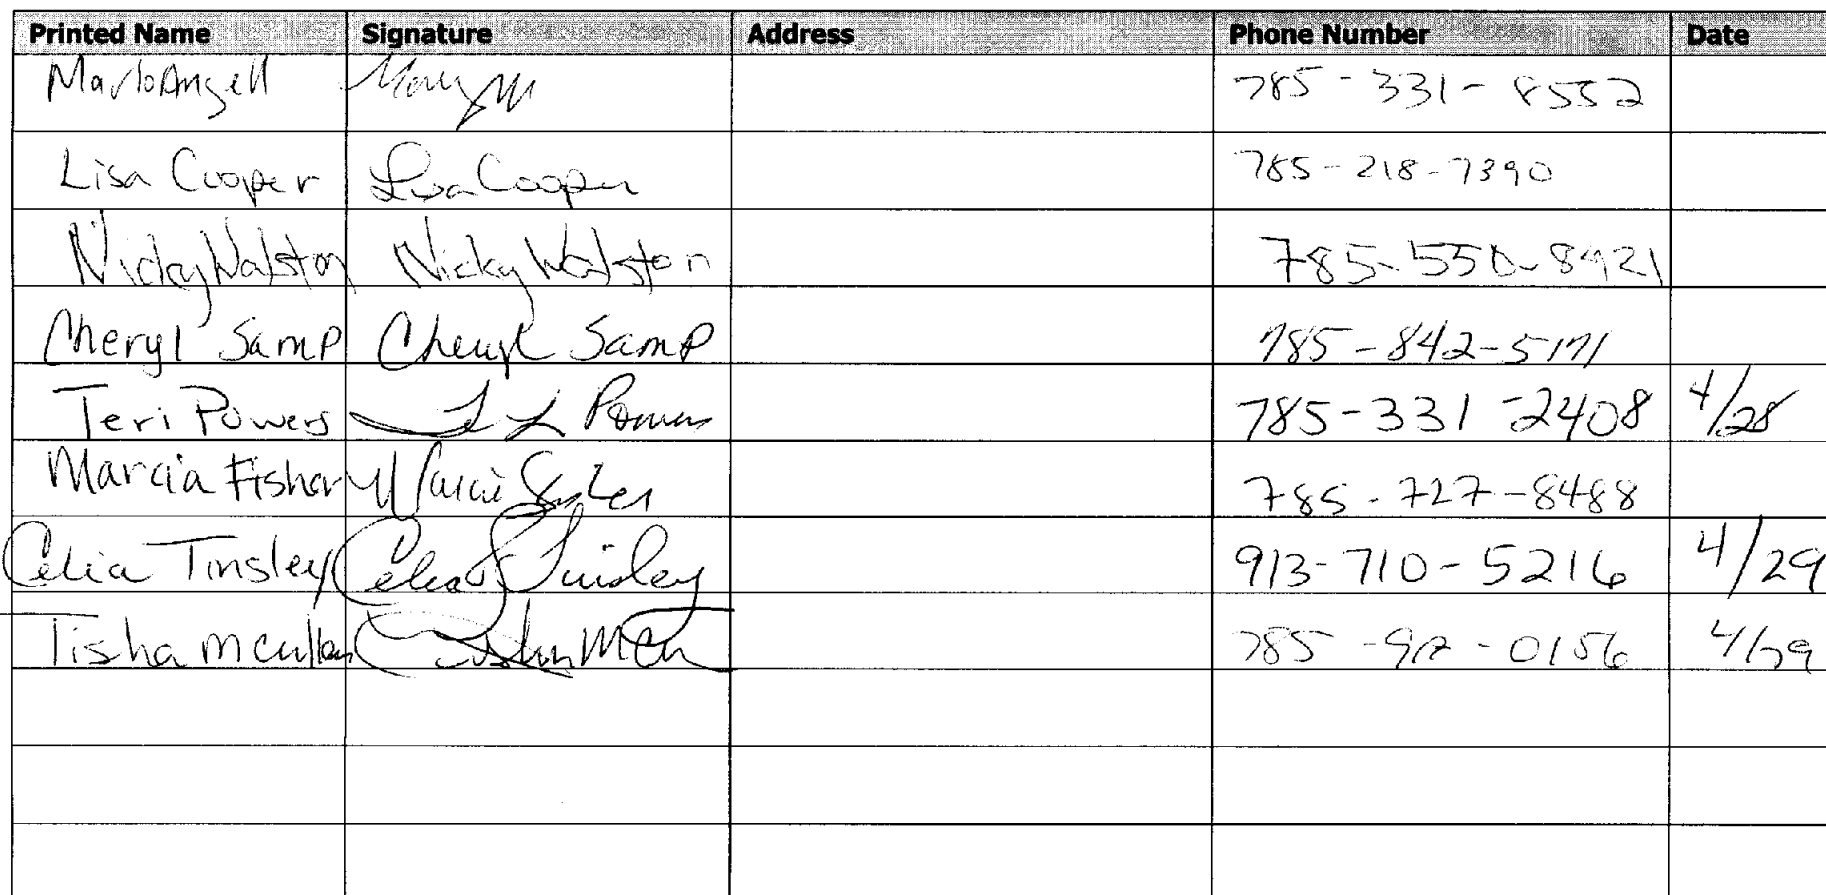 Printed Name Signature Address Phone Number Date
Marlo Angell 785-331-8552
Lisa Cooper Lisa Cooper 785-218-7390
Nicky Walston Nicky Walston 785-550-8921
Cheryl Samp Cheryl Samp 785-842-5171
Teri Powers T L Powers 785-331-2408 4/28
Marcia Fisher Marcia Fisher 785-727-8488
Celia Tinsley Celia Tinsley 913-710-5216 4/29
Tisha 785 - - 0156 4/29